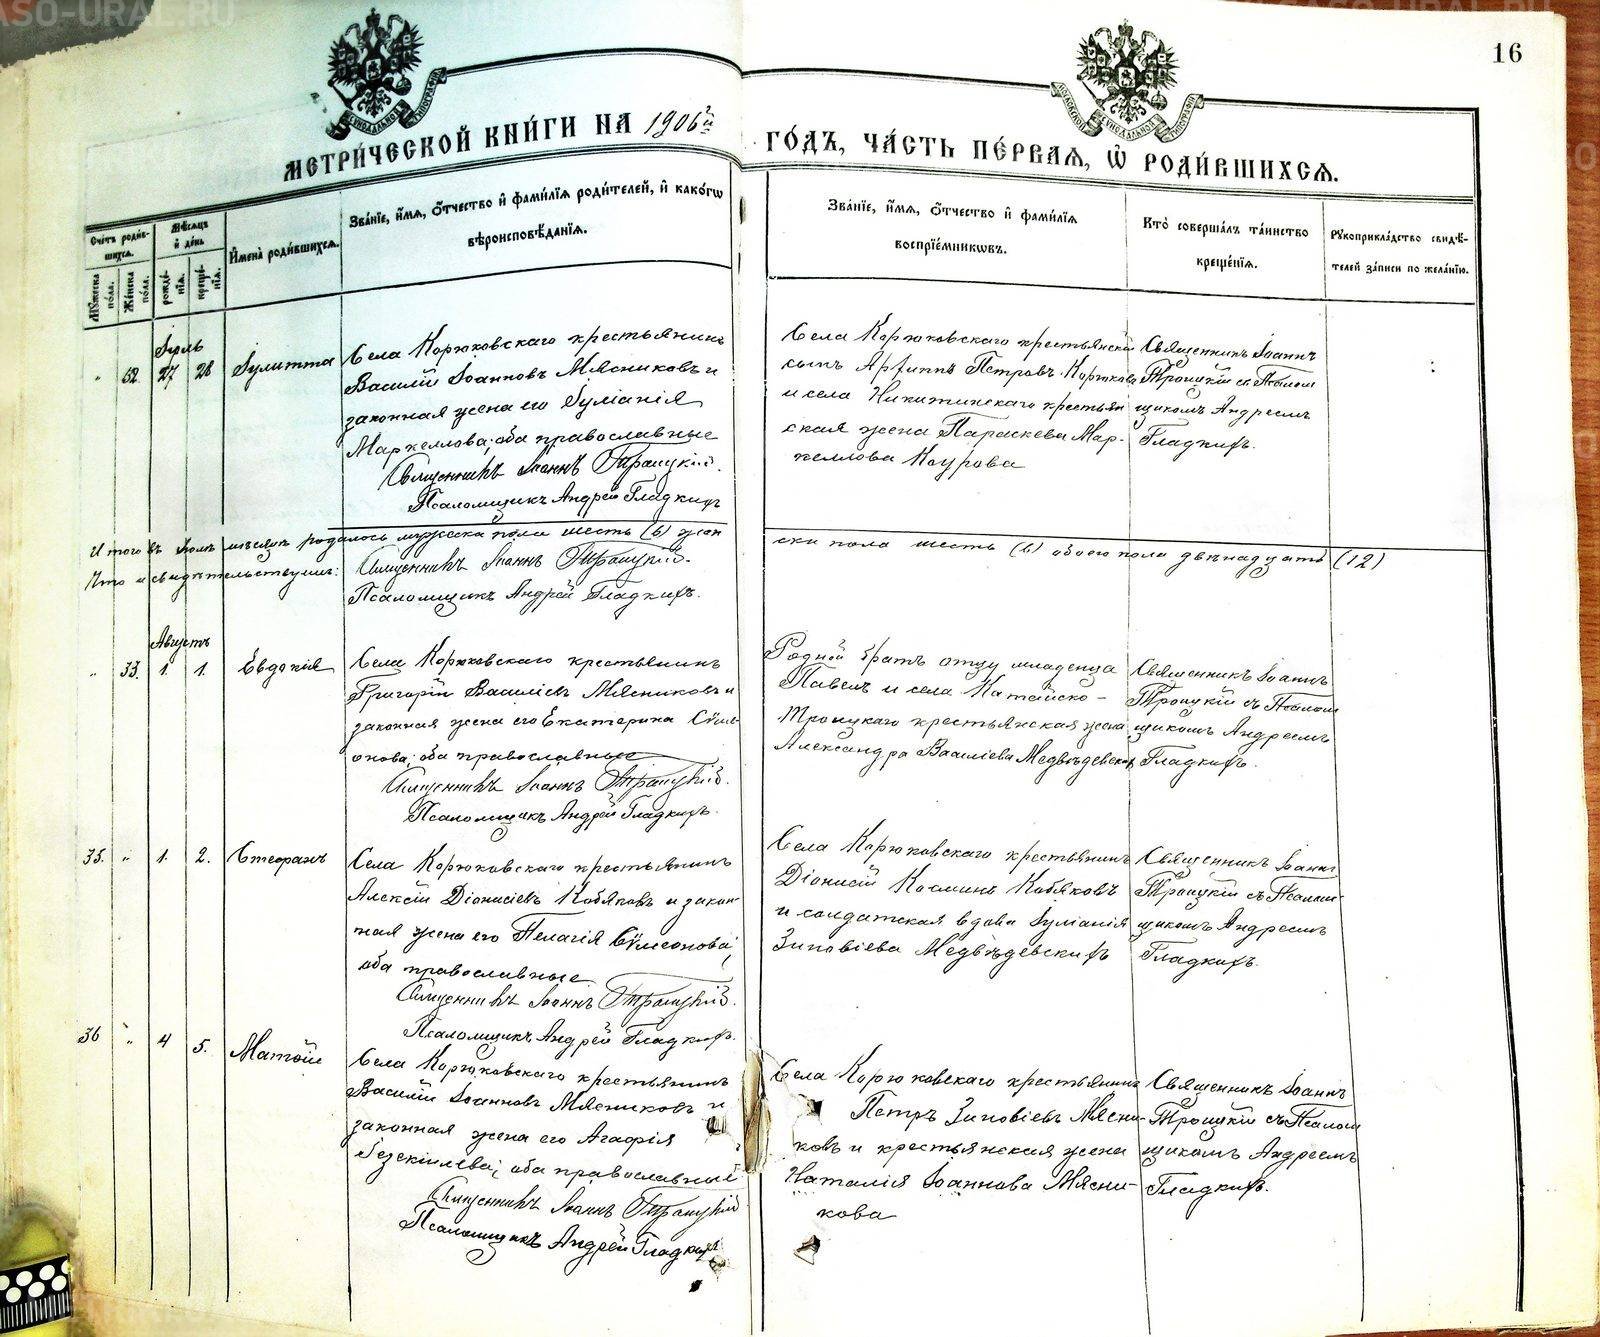 GASO-URAL.RU
16
МЕТРИ́ЧЕСКОЙ КНИ́ГИ НА 1906й
ГО́ДЪ, ЧА́СТЬ ПЕ́РВАѦ, Ѡ҆ РОДИ́ВШИХСѦ.
Сче́тъ роди́в-
шихсѧ.
Мѹ́жеска по́ла.
Же́нска по́ла.
Мѣ́сѧцъ и҆ де́нь
рожде́-нїѧ.
креще́-нїѧ.
И҆мена̀ роди́вшихсѧ.
Зва́нїе, и҆́мѧ, ѻ҆́тчество и҆ фамѝлїѧ роди́телей, и҆ како́гѡ
вѣроисповѣ́данїѧ.
Зва́нїе, и҆́мѧ, ѻ҆́тчество и҆ фамѝлїѧ
воспрїе́мникѡвъ.
Кто̀ соверша́лъ та́инство
креще́нїѧ.
Рѹкоприкла́дство свидѣ́-
телей за́писи по жела́нїю.
Іюль
" 32. 27 28 Іулитта
Села Корюковскаго крестьянинъ
Василій Іоанновъ Мясниковъ и
законная жена его Іуліанія
Маркеллова; оба православные
Священникъ Іоаннъ Троицкій.
Псаломщикъ Андрей Гладкихъ
Села Корюковскаго крестьянскій
сынъ Архиппъ Петровъ Корюковъ
и села Никитинскаго крестьян
ская жена Параскева Мар-
келлова Коурова
Священникъ Іоаннъ
Троицкій съ Псалом
щикомъ Андреемъ
Гладкихъ.
Итого въ Іюлѣ мѣсяцѣ родилось мужеска пола шесть (6) жен
ска пола шесть (6) обоего пола двѣнадцать (12)
Что и свидѣтельствуемъ: Священникъ Іоаннъ Троицкій.
Псаломщикъ Андрей Гладкихъ.
Августъ
" 33. 1. 1. Евдокія
Села Корюковскаго крестьянинъ
Григорій Василіевъ Мясниковъ и
законная жена его Екатерина Сѵме-
онова; оба православные
Священникъ Іоаннъ Троицкій.
Псаломщикъ Андрей Гладкихъ.
Родной братъ отцу младенца
Павелъ и села Катайско-
Троицкаго крестьянская жена
Александра Василіева Медвѣдевскихъ
Священникъ Іоаннъ
Троицкій съ Псалом
щикомъ Андреемъ
Гладкихъ.
35. " 1. 2. Стефанъ
Села Корюковскаго крестьянинъ
Алексій Діонисіевъ Кобяковъ и закон-
ная жена его Пелагія Сѵмеонова;
оба православные
Священникъ Іоаннъ Троицкій.
Псаломщикъ Андрей Гладкихъ.
Села Корюковскаго крестьянинъ
Діонисій Косминъ Кобяковъ
и солдатская вдова Іуліанія
Зиновіева Медвѣдевскихъ
Священникъ Іоаннъ
Троицкій съ Псалом-
щикомъ Андреемъ
Гладкихъ.
36 " 4 5. Матѳій
Села Корюковскаго крестьянинъ
Василій Іоанновъ Мясниковъ и
законная жена его Агафія
Іезекіилева; оба православные
Священникъ Іоаннъ Троицкій
Псаломщикъ Андрей Гладкихъ
Села Корюковскаго крестьянинъ
Петръ Зиновіевъ Мясни-
ковъ и крестьянская жена
Наталія Іоаннова Мясни-
кова
Священникъ Іоаннъ
Троицкій съ Псалом
щикомъ Андреемъ
Гладкихъ.